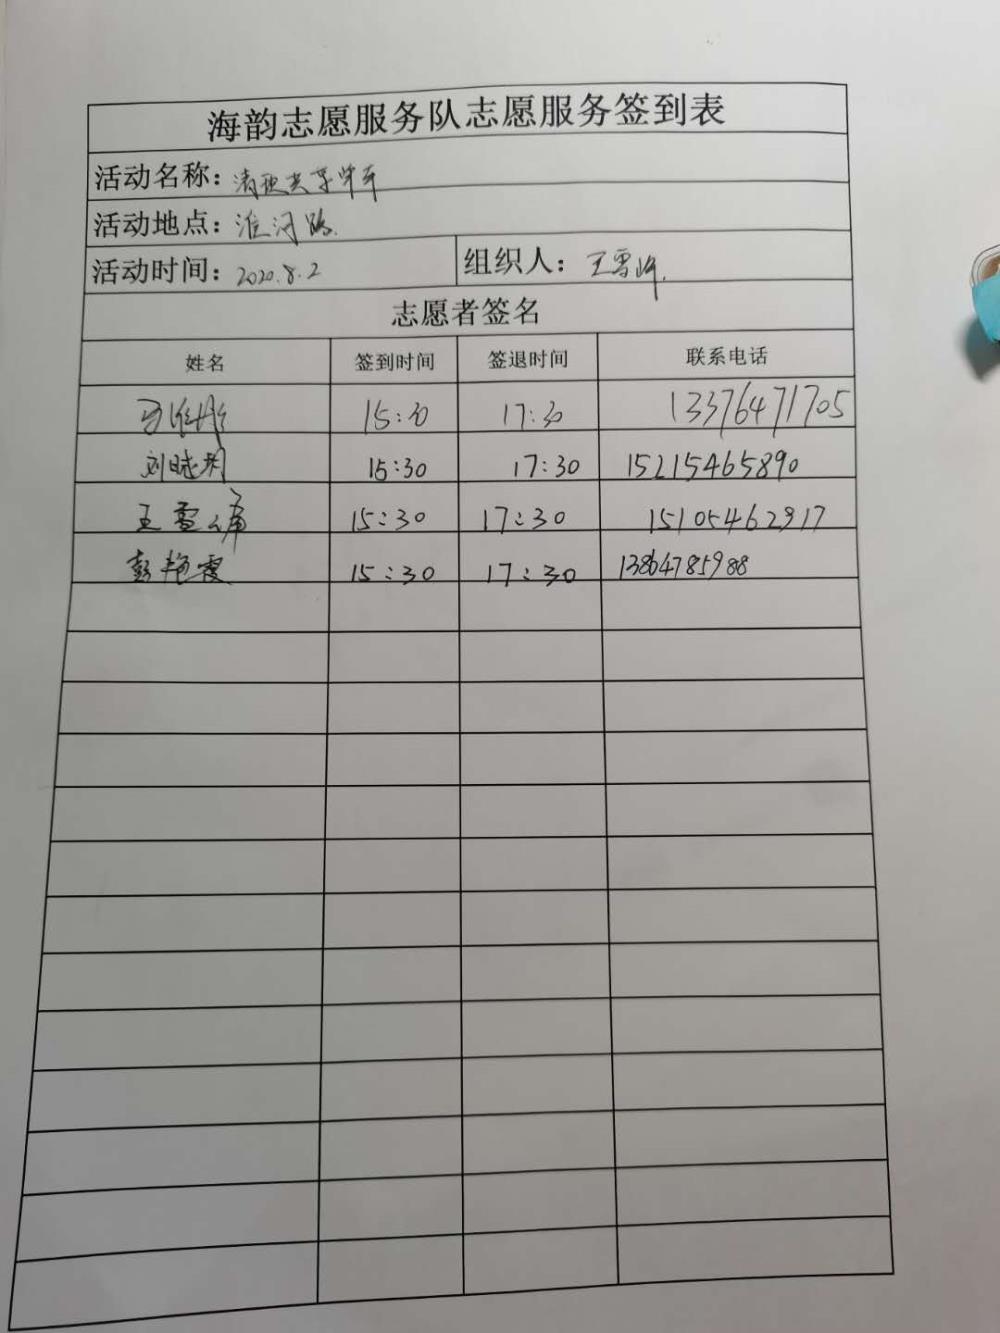 海韵志愿服务队志愿服务签到表
活动名称：清理共享单车
活动地点：淮河路
活动时间：2020.8.2 组织人：王雪峰
志愿者签名
姓名 签到时间 签退时间 联系电话
15:30 17:30 13376471705
刘晓 15:30 17:30 15215465890
王雪 15:30 17:30 15105462917
彭艳霞 15:30 17:30 13864785988